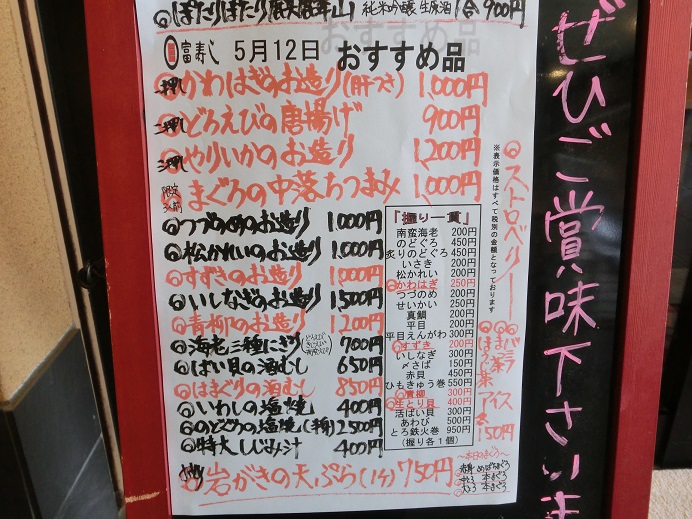 純米吟醸 生原酒 1合 900円
富寿し 5月12日 おすすめ品
一押し かわはぎのお造り(肝つき) 1,000円
二押し どろえびの唐揚げ 900円
三押し やりいかのお造り 1,200円
限定 まぐろの中落ちつまみ 1,000円
つづのめのお造り 1,000円
松かれいのお造り 1,000円
すずきのお造り 1,000円
いしなぎのお造り 1,500円
青柳のお造り 1,200円
海老三種にぎり 700円
ばい貝の酒むし 650円
はまぐりの酒むし 850円
いわしの塩焼 400円
のどぐろの塩焼 2,500円
特大しじみ汁 400円
岩がきの天ぷら(1ヶ) 750円
「握り一貫」
南蛮海老 200円
のどぐろ 450円
炙りのどぐろ 450円
いさき 200円
松かれい 200円
かわはぎ 250円
つづのめ 200円
せいかい 200円
真鯛 200円
平目 200円
平目えんがわ 300円
すずき 200円
いしなぎ 300円
〆さば 150円
赤貝 450円
ひもきゅう巻 550円
青柳 300円
生とり貝 400円
活ばい貝 300円
あわび 500円
とろ鉄火巻 950円
(握り各1個)
〜本日のまぐろ〜
赤身 めばちまぐろ
中とろ 本まぐろ
大とろ 本まぐろ
※表示価格はすべて税別の金額となっております
ストロベリー
バニラ
抹茶
アイス
各150円
ぜひご賞味下さいま